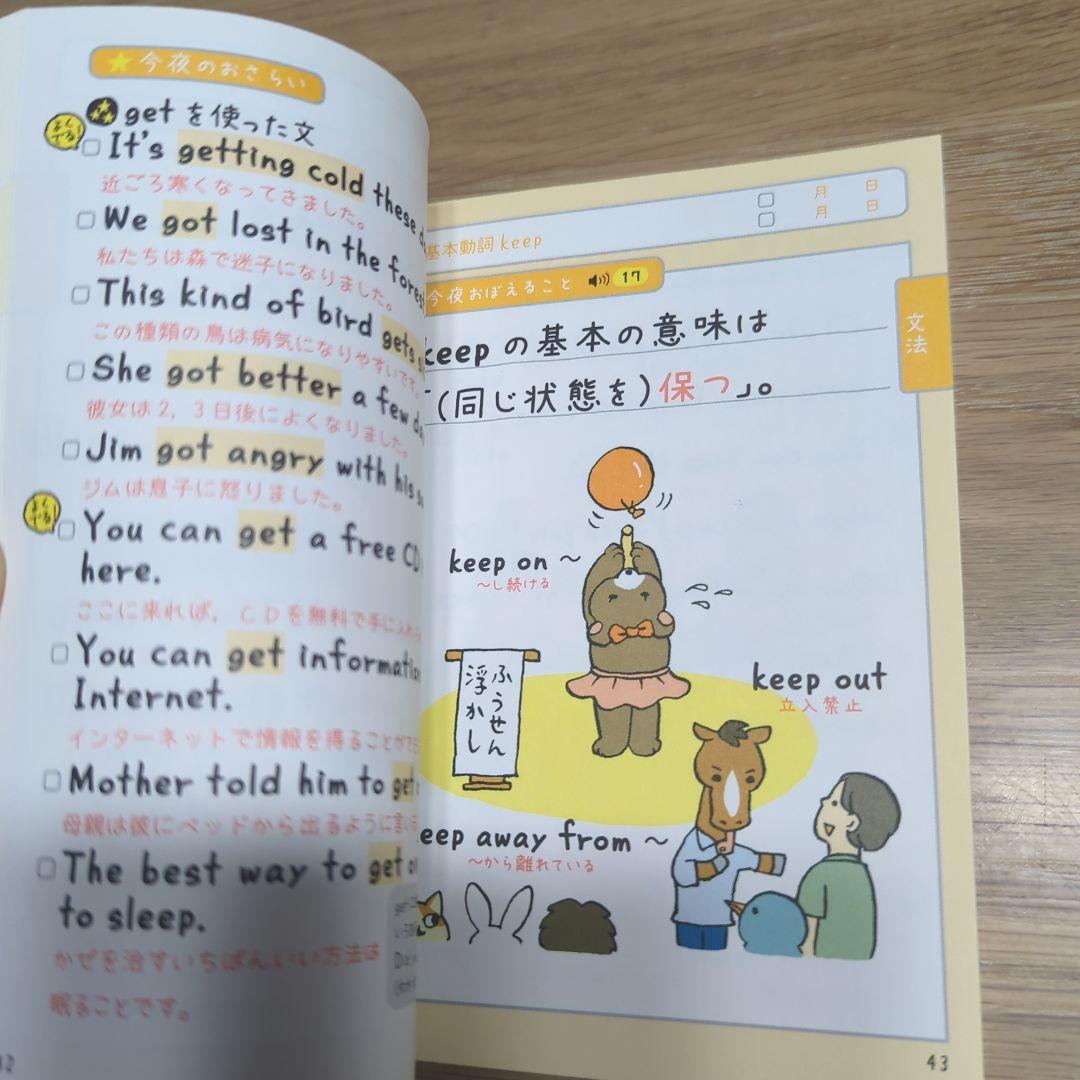 今夜のおさらい
getを使った文
よくでる!
It's getting cold these
近ごろ寒くなってきました。
We got lost in the forest
私たちは森で迷子になりました。
This kind of bird gets
この種類の鳥は病気になりやすいです。
She got better a few
彼女は2,3日後によくなりました。
Jim got angry with his
ジムは息子に怒りました。
よくでる!
You can get a free CD
here.
ここに来れば,CDを無料で手に入れ
You can get information
Internet.
インターネットで情報を得ることが
Mother told him to get
母親は彼にベッドから出るように言い
The best way to get
to sleep.
かぜを治すいちばんいい方法は
眠ることです。
月 日
月 日
基本動詞 keep
今夜おぼえること 17
文法
keepの基本の意味は
「(同じ状態を)保つ」。
keep on ~
~し続ける
ふうせん
浮かし
keep out
立入禁止
keep away from ~
~から離れている
43